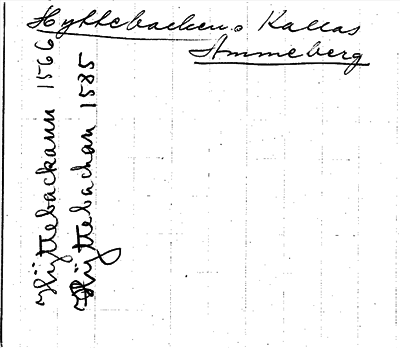 Hyttebacken. Kallas
Ammeberg
Hÿttebackann 1566
Hÿttebachan 1585